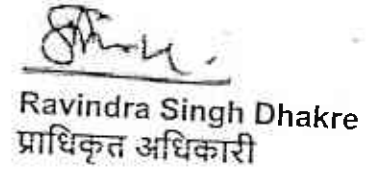 Ravindra Singh Dhakre
प्राधिकृत अधिकारी